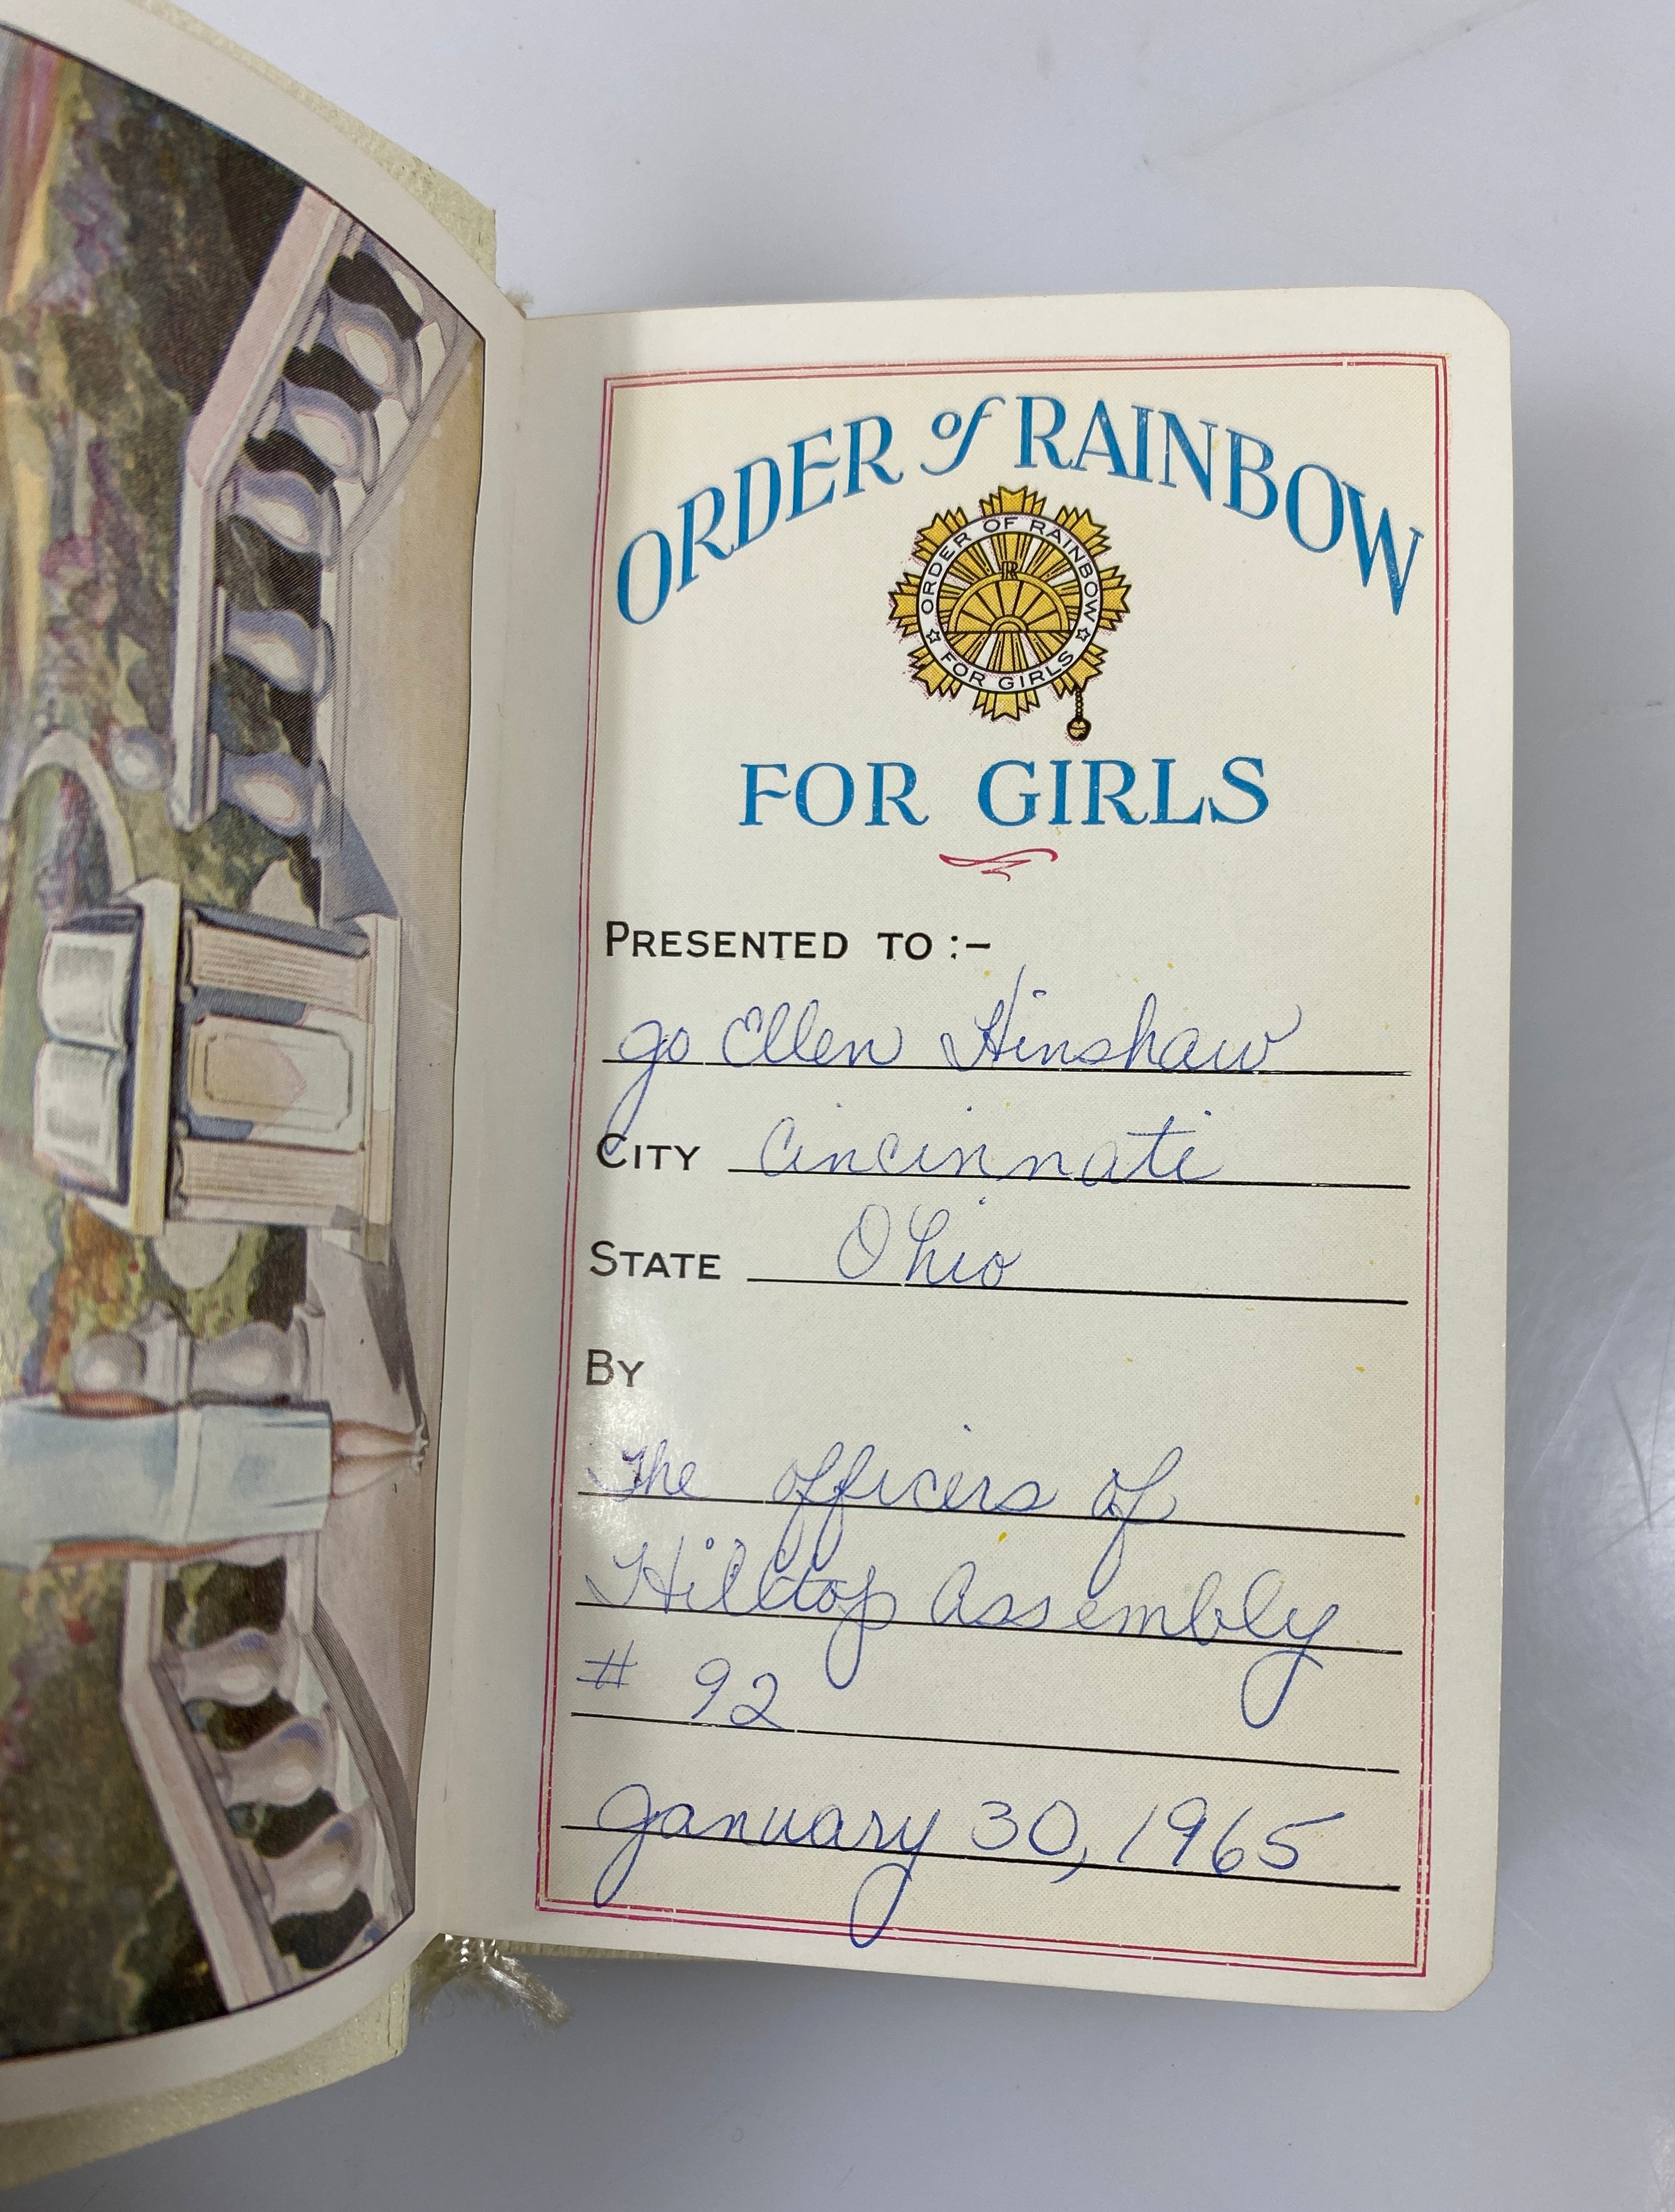 ORDER of RAINBOW
ORDER OF RAINBOW
R
FOR GIRLS
FOR GIRLS
PRESENTED TO :-
Jo Ellen Hinshaw
CITY Cincinnati
STATE Ohio
BY
The officers of
Hilltop Assembly
# 92
January 30, 1965